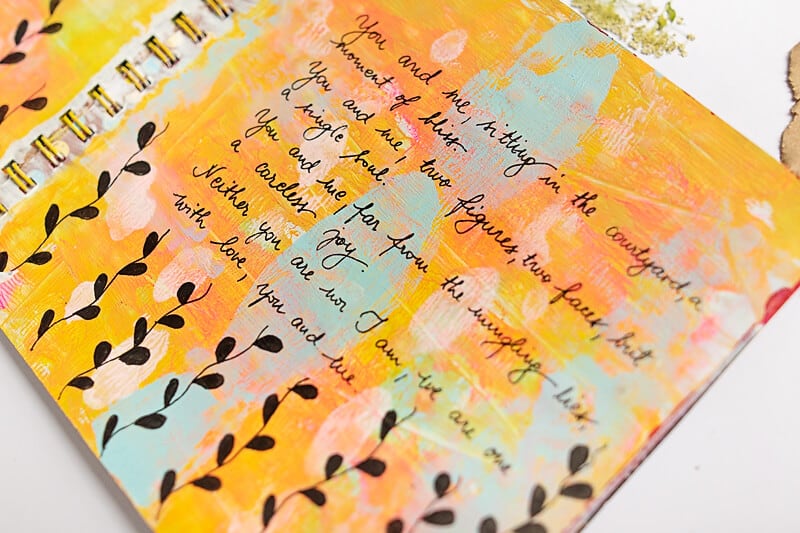 You and me, sitting in the courtyard, a
moment of bliss.
You and me, two figures, two faces, but
a single soul.
You and me far from the mingling lies,
a careless joy.
Neither you are nor I am, we are one
with love, you and me